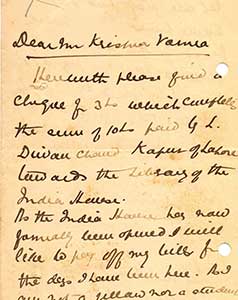 Dear Mr Krishna Varma
Herewith please find a
cheque of 3£s which completes
the sum of 10£s paid by L.
Diwan Chand Kapur of Lahore
towards the library of the
India House.
As the India House has now
formally been opened I will
like to pay off my bills for
the days I have been here. As I
am not a fellow nor a student